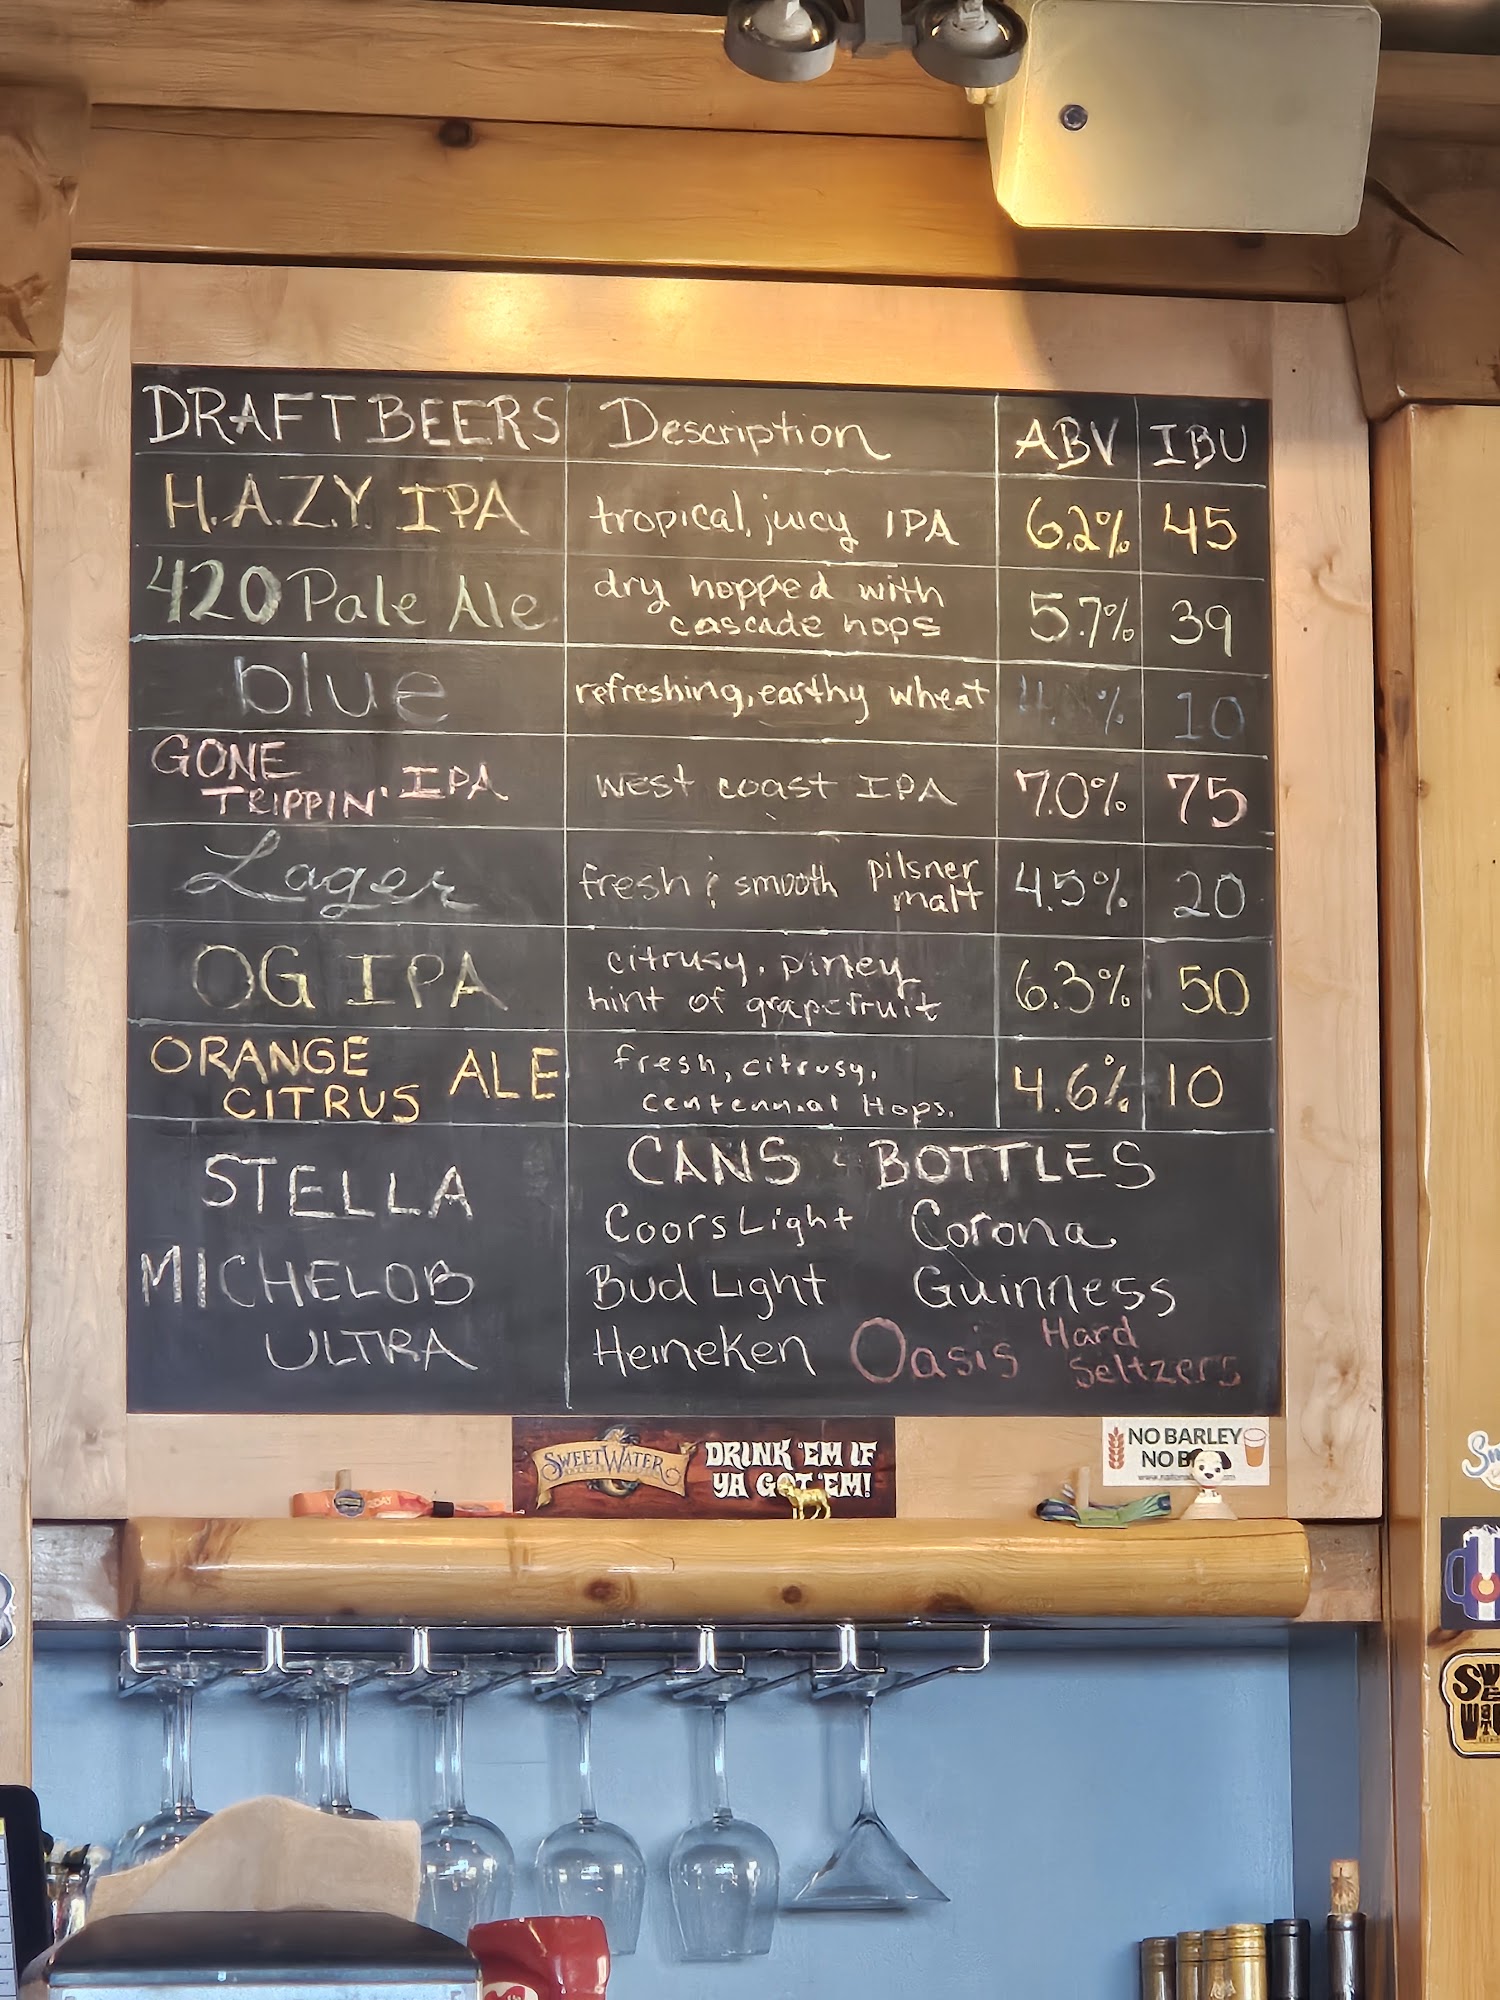 DRAFT BEERS Description ABV IBU
H.A.Z.Y. IPA tropical, juicy IPA 6.2% 45
420 Pale Ale dry hopped with cascade hops 5.7% 39
blue refreshing, earthy wheat % 10
GONE TRIPPIN' IPA west coast IPA 7.0% 75
Lager fresh & smooth pilsner malt 4.5% 20
OG IPA citrusy, piney hint of grapefruit 6.3% 50
ORANGE CITRUS ALE fresh, citrusy, centennial Hops. 4.6% 10
STELLA
MICHELOB
ULTRA
CANS & BOTTLES
Coors Light Corona
Bud Light Guinness
Heineken Oasis Hard Seltzers
SWEETWATER
DRINK 'EM IF
YA GOT 'EM!
NO BARLEY
NO